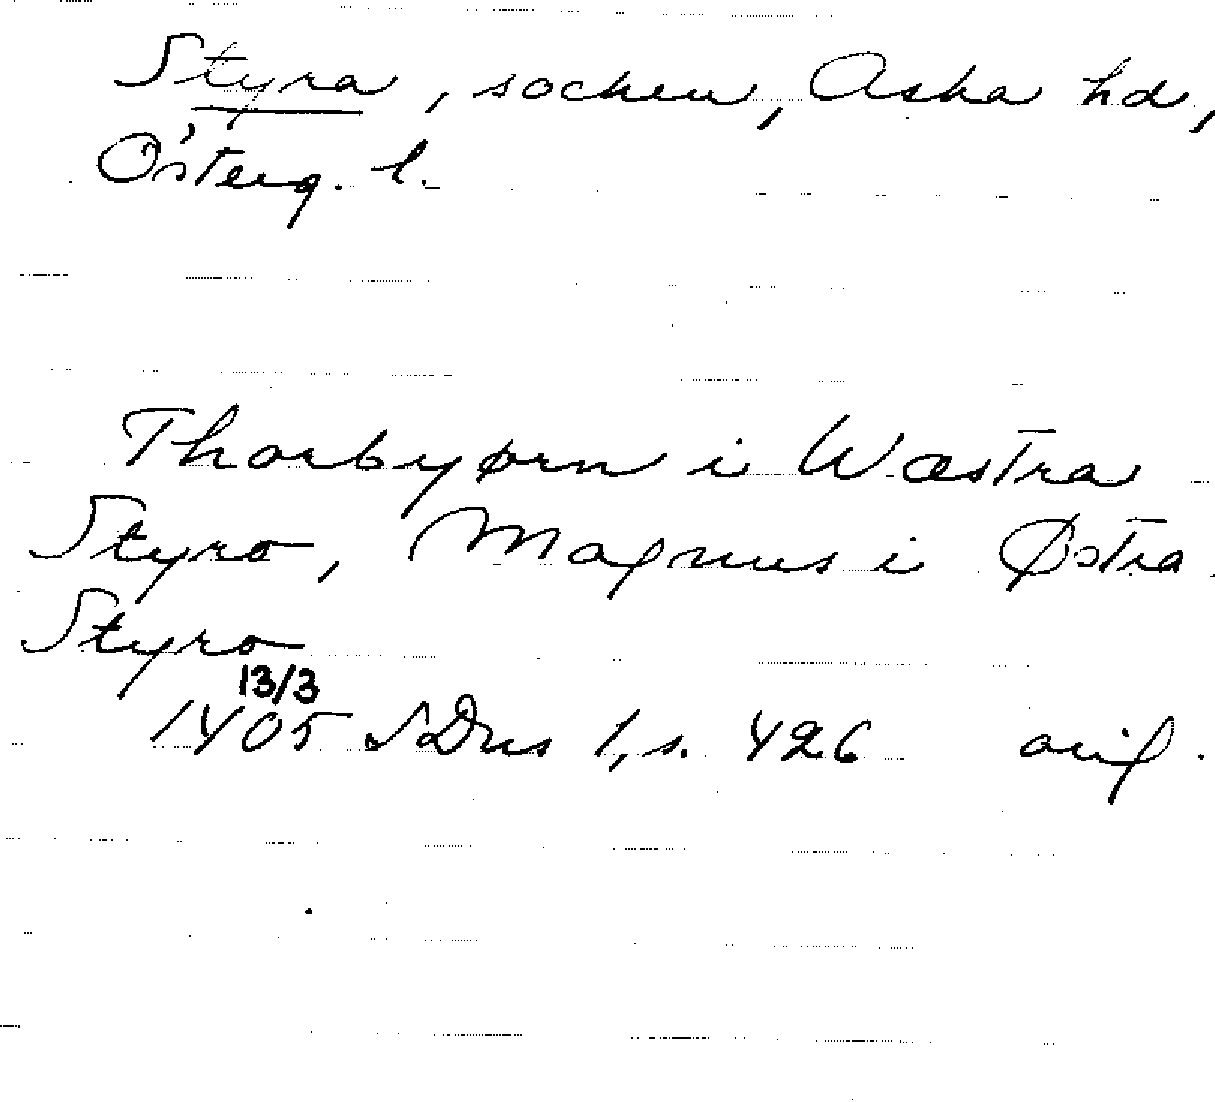 Styra, socken, Aska hd,
Österg. l.
Thorbyørn i Wæstra
Styro, Magnus i Østra
Styro
13/3
1405 SDns 1, s. 426 orig.